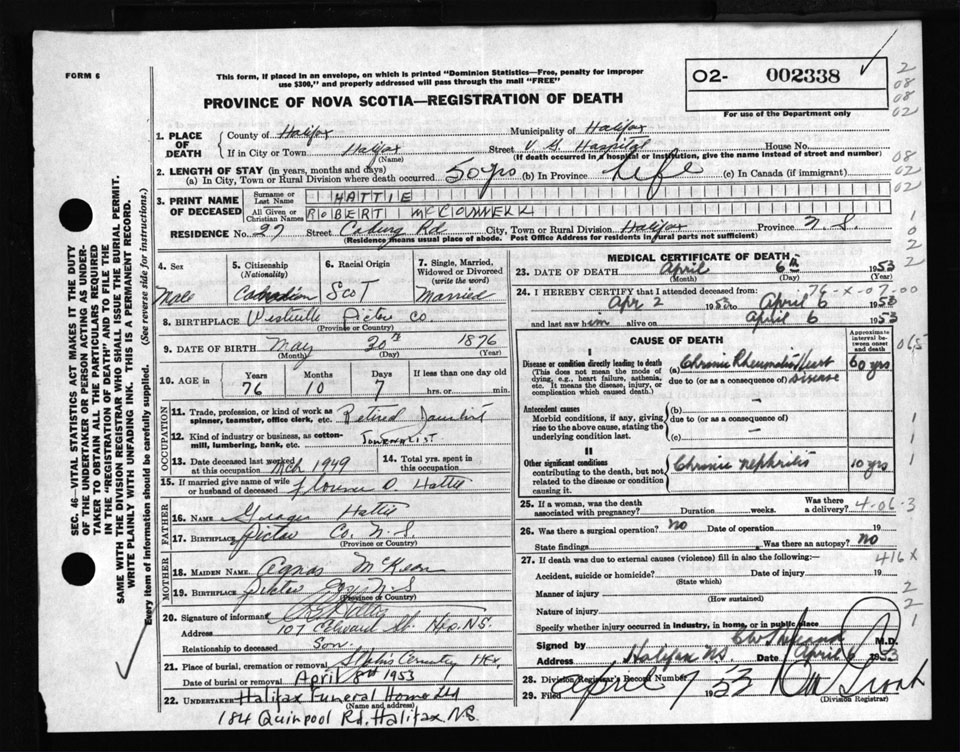 FORM 6
This form, if placed in an envelope, on which is printed "Dominion Statistics—Free, penalty for improper
use $300," and properly addressed will pass through the mail "FREE"
O2- 002338
For use of the Department only
PROVINCE OF NOVA SCOTIA—REGISTRATION OF DEATH
2
08
08
02
08
02
1
0
2
2
1. PLACE OF DEATH
County of Halifax Municipality of Halifax
If in City or Town Halifax Street V. G. Hospital House No.
(Name) (If death occurred in a hospital or institution, give the name instead of street and number)
2. LENGTH OF STAY (in years, months and days)
(a) In City, Town or Rural Division where death occurred 50 yrs (b) In Province Life (c) In Canada (if immigrant)
3. PRINT NAME OF DECEASED
Surname or Last Name HATTIE
All Given or Christian Names ROBERT McCONNELL
RESIDENCE No. 27 Street Coburg Rd City, Town or Rural Division Halifax Province N. S.
(Residence means usual place of abode. Post Office Address for residents in rural parts not sufficient)
4. Sex
Male
5. Citizenship
(Nationality)
Canadian
6. Racial Origin
SCOT
7. Single, Married,
Widowed or Divorced
(write the word)
Married
8. BIRTHPLACE Westville Pictou Co
(Province or Country)
9. DATE OF BIRTH May 30th 1876
(Month) (Day) (Year)
10. AGE in Years Months Days If less than one day old
76 10 7 hrs. or min.
OCCUPATION
11. Trade, profession, or kind of work as
spinner, teamster, office clerk, etc. Retired Journalist
12. Kind of industry or business, as cotton-
mill, lumbering, bank, etc. JOURNALIST
13. Date deceased last worked
at this occupation Mch 1949
14. Total yrs. spent in
this occupation
15. If married give name of wife
or husband of deceased Florence D. Hattie
FATHER
16. NAME George Hattie
17. BIRTHPLACE Pictou Co. N.S.
(Province or Country)
MOTHER
18. MAIDEN NAME Agnes McKean
19. BIRTHPLACE Pictou Co N.S.
(Province or Country)
20. Signature of informant Hattie
Address 107 Edward St. Hfx. N.S.
Relationship to deceased Son
21. Place of burial, cremation or removal Cemetery HFX,
Date of burial or removal April 8th 1953
22. UNDERTAKER Halifax Funeral Home Ltd
(Name and address)
184 Quinpool Rd, Halifax N.S.
MEDICAL CERTIFICATE OF DEATH
23. DATE OF DEATH April 6th 1953
(Month) (Day) (Year)
76-X-07-00
24. I HEREBY CERTIFY that I attended deceased from:
Apr 2 1953 to April 6 1953
and last saw him alive on April 6 1953
CAUSE OF DEATH
Approximate
interval be-
tween onset
and death
065
I
Disease or condition directly leading to death
(This does not mean the mode of
dying, e.g., heart failure, asthenia,
etc. It means the disease, injury, or
complication which caused death.)
(a) Chronic Rheumatic Heart
due to (or as a consequence of) disease
60 yrs
Antecedent causes
Morbid conditions, if any, giving
rise to the above cause, stating the
underlying condition last.
(b) —
due to (or as a consequence of)
(c) —
II
Other significant conditions
contributing to the death, but not
related to the disease or condition
causing it.
Chronic nephritis 10 yrs
1
1
1
1
25. If a woman, was the death
associated with pregnancy? Duration weeks. Was there
a delivery?
4-06-3
26. Was there a surgical operation? No Date of operation 19
State findings Was there an autopsy? No
27. If death was due to external causes (violence) fill in also the following:
416X
Accident, suicide or homicide? Date of injury 19
(State which)
Manner of injury
(How sustained)
2
Nature of injury
2
Specify whether injury occurred in industry, in home, or in public place
1
Signed by M.D.
Address Halifax N.S. Date April 6 1953
28. Division Registrar's Record Number
29. Filed April 7 1953
(Division Registrar)
SEC. 46 VITAL STATISTICS ACT MAKES IT THE DUTY
OF THE UNDERTAKER OR PERSON ACTING AS UNDER-
TAKER TO OBTAIN ALL THE PARTICULARS REQUIRED
IN THE "REGISTRATION OF DEATH" AND TO FILE THE
SAME WITH THE DIVISION REGISTRAR WHO SHALL ISSUE THE BURIAL PERMIT.
WRITE PLAINLY WITH UNFADING INK. THIS IS A PERMANENT RECORD.
Every item of information should be carefully supplied. (See reverse side for instructions.)